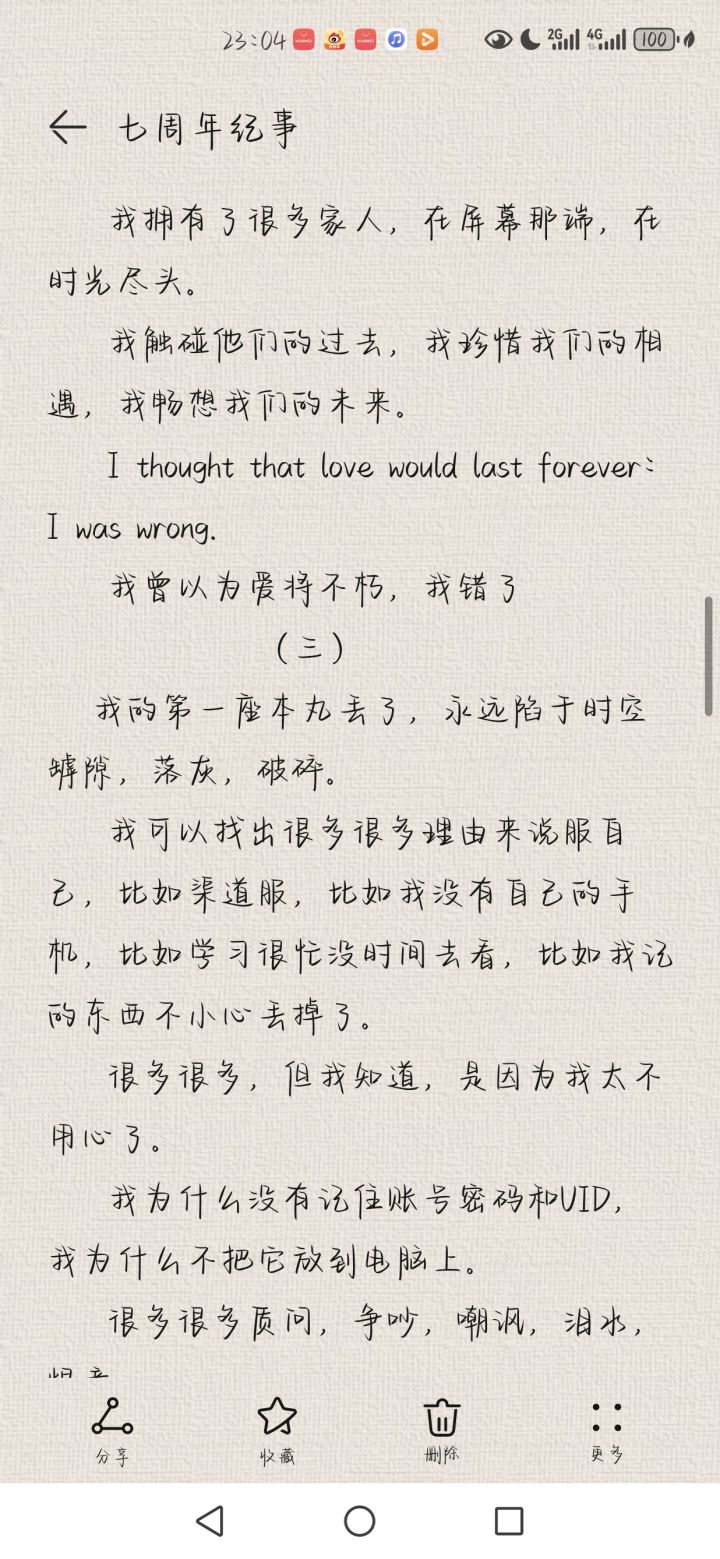 23:04
2G
4G
100
七周年纪事
我拥有了很多家人，在屏幕那端，在
时光尽头。
我触碰他们的过去，我珍惜我们的相
遇，我畅想我们的未来。
I thought that love would last forever:
I was wrong.
我曾以为爱将不朽，我错了
（三）
我的第一座本丸丢了，永远陷于时空
罅隙，落灰，破碎。
我可以找出很多很多理由来说服自
己，比如渠道服，比如我没有自己的手
机，比如学习很忙没时间去看，比如我记
的东西不小心丢掉了。
很多很多，但我知道，是因为我太不
用心了。
我为什么没有记住账号密码和UID，
我为什么不把它放到电脑上。
很多很多质问，争吵，嘲讽，泪水，
分享
收藏
删除
更多